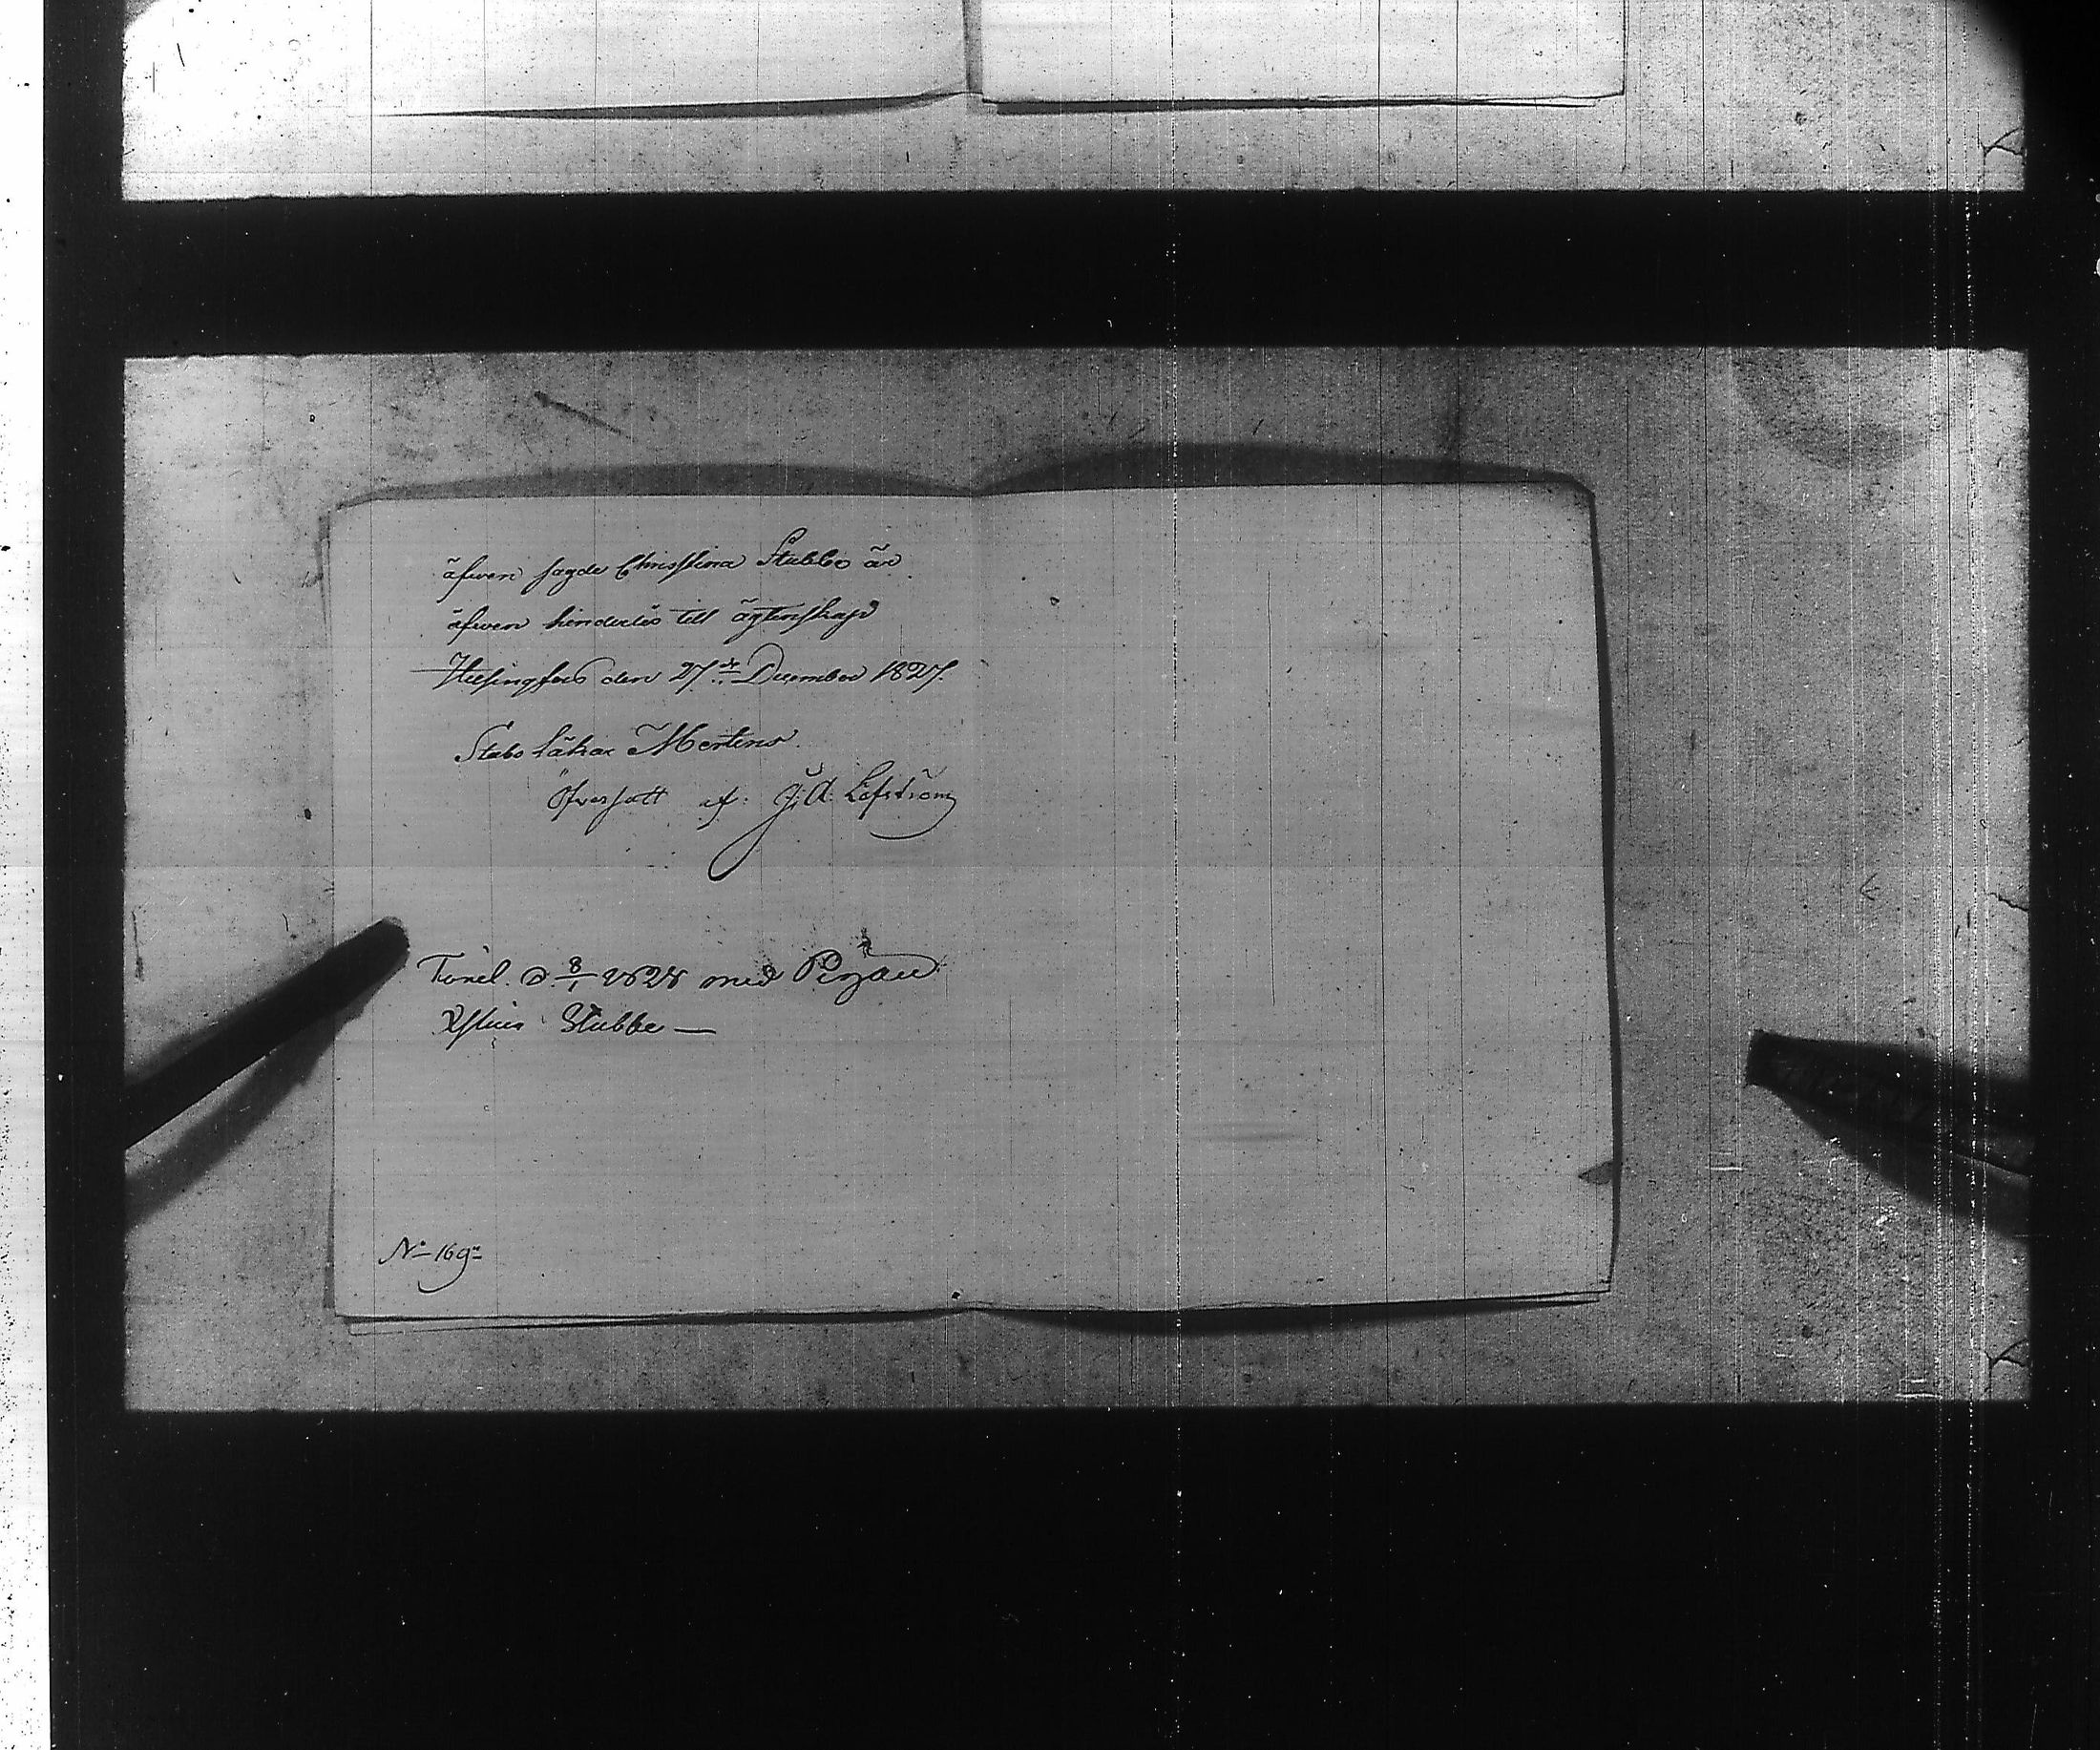 äfwen sagde Christina Stubbe är
äfwen hinderlös till ägtenskap
Helsingfors den 27de December 1827.
Stabs läkar Mertens.
Öfversatt af: J: A: Löfström
d. 8/1 1828 med Pigan
Xstina Stubbe —
No 169